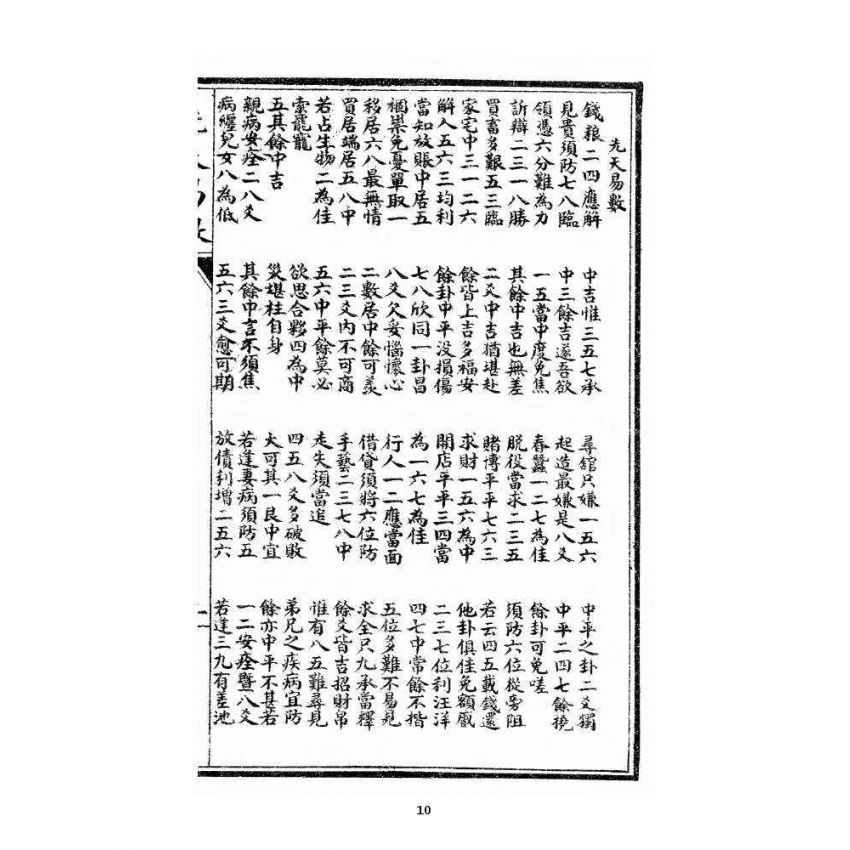 先天易數
錢粮二四應解 中吉惟三五七承 尋舘只嫌一五六 中平之卦二爻獨
見貴須防七八臨 中三餘吉遂吾欲 起造最嫌是八爻 中平二四七餘撓
領憑六分難為力 一五當中度免焦 春蠶一二七為佳 餘卦可免嗟
訴辯二三一八勝 其餘中吉也無差 脱役當求二三五 須防六位從旁阻
買畜多艱五三臨 二爻中吉猶堪赴 賭博平平七六三 若云四五載錢還
家宅中三一二六 餘皆上吉多福安 求財一五六為中 他卦俱佳免額
解入五六三均利 餘卦中平没損傷 開店平平三四當 二三七位利汪洋
當知放賬中居五 七八欣同一卦昌 為一六七為佳 四七中常餘不揩
祟免憂單取一 八爻欠安惱懷心 行人一二應當面 五位多難不易見
移居六八最無情 二數居中餘可羨 借貸須將六位防 求全只九承當釋
買居端居五八中 二三爻内不可商 手藝二三七八中 餘爻皆吉招財帛
若占生物二為佳 五六中平餘莫必 走失須當追 惟有八五難尋見
索罷寵 欲思合夥四為中 四五八爻多破敗 弟兄之疾病宜防
五其餘中吉 災堪柱自身 大可其一艮中宜 餘亦中平不甚若
親病安痊二八爻 其餘中言不須焦 若逢妻病須防五 一二安痊暨八爻
病纏兒女八為低 五六三爻愈可期 放債利增二五六 若逢三九有差池
10